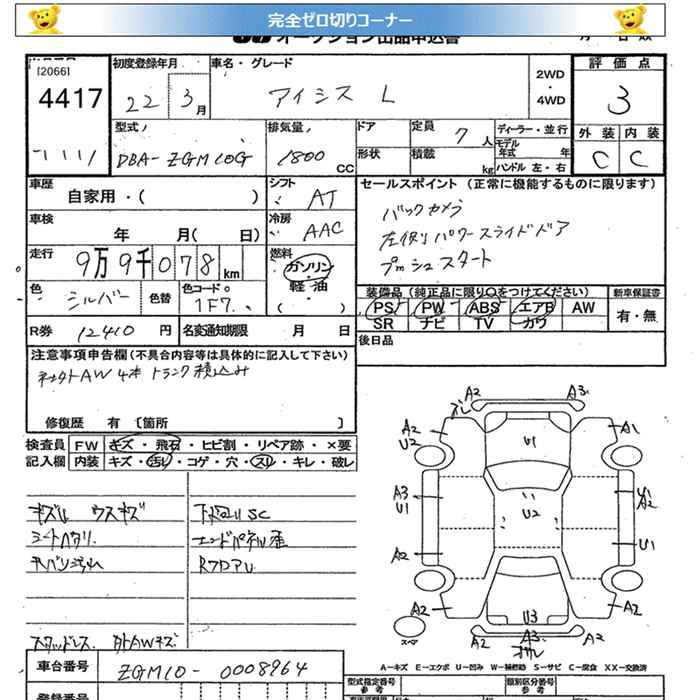 完全ゼロ切りコーナー
オークション出品申込書
[2066]
4417
初度登録年月
22 3月
車名・グレード
アイシス L
2WD
・
4WD
評価点
3
外装 内装
C C
型式
DBA-ZGM10G
排気量
1800 CC
ドア
形状
定員 7人
積載 kg
ディーラー・並行
モデル年式 年
ハンドル 左・右
車歴
自家用・( )
シフト
AT
セールスポイント (正常に機能するものに限ります)
バックカメラ
左側パワースライドドア
プッシュスタート
車検
年 月(日)
冷房
AAC
走行
9万9千078km
燃料
ガソリン
・
軽油
( )
色
シルバー
色替
色コード
1F7
装備品 (純正品に限り○をつけてください)
PS PW ABS エアB AW
SR ナビ TV カワ
新車保証書
有・無
R券 12410円
名変通知期限 月 日
後日品
注意事項申告欄(不具合内容等は具体的に記入して下さい)
社外AW4本 トランク積込み
修復歴 有 [箇所 ]
検査員
記入欄
FW キズ・飛石・ヒビ割・リペア跡・×要
内装 キズ・汚レ・コゲ・穴・スレ・キレ・破レ
ウスキズ
下廻りSC
エンドパネル歪
スタッドレス 外AWキズ
A2 A3
A2 U2
U1
A1
A3 U1
U2
A2
A2
U1
A2 U3 A2
A2 A3 A2
スペア
A-キズ E-エクボ U-凹み W-補修跡 S-サビ C-腐食 XX-交換済
車台番号
ZGM10-0008964
登録番号
型式指定番号
参考
類別区分番号
参考